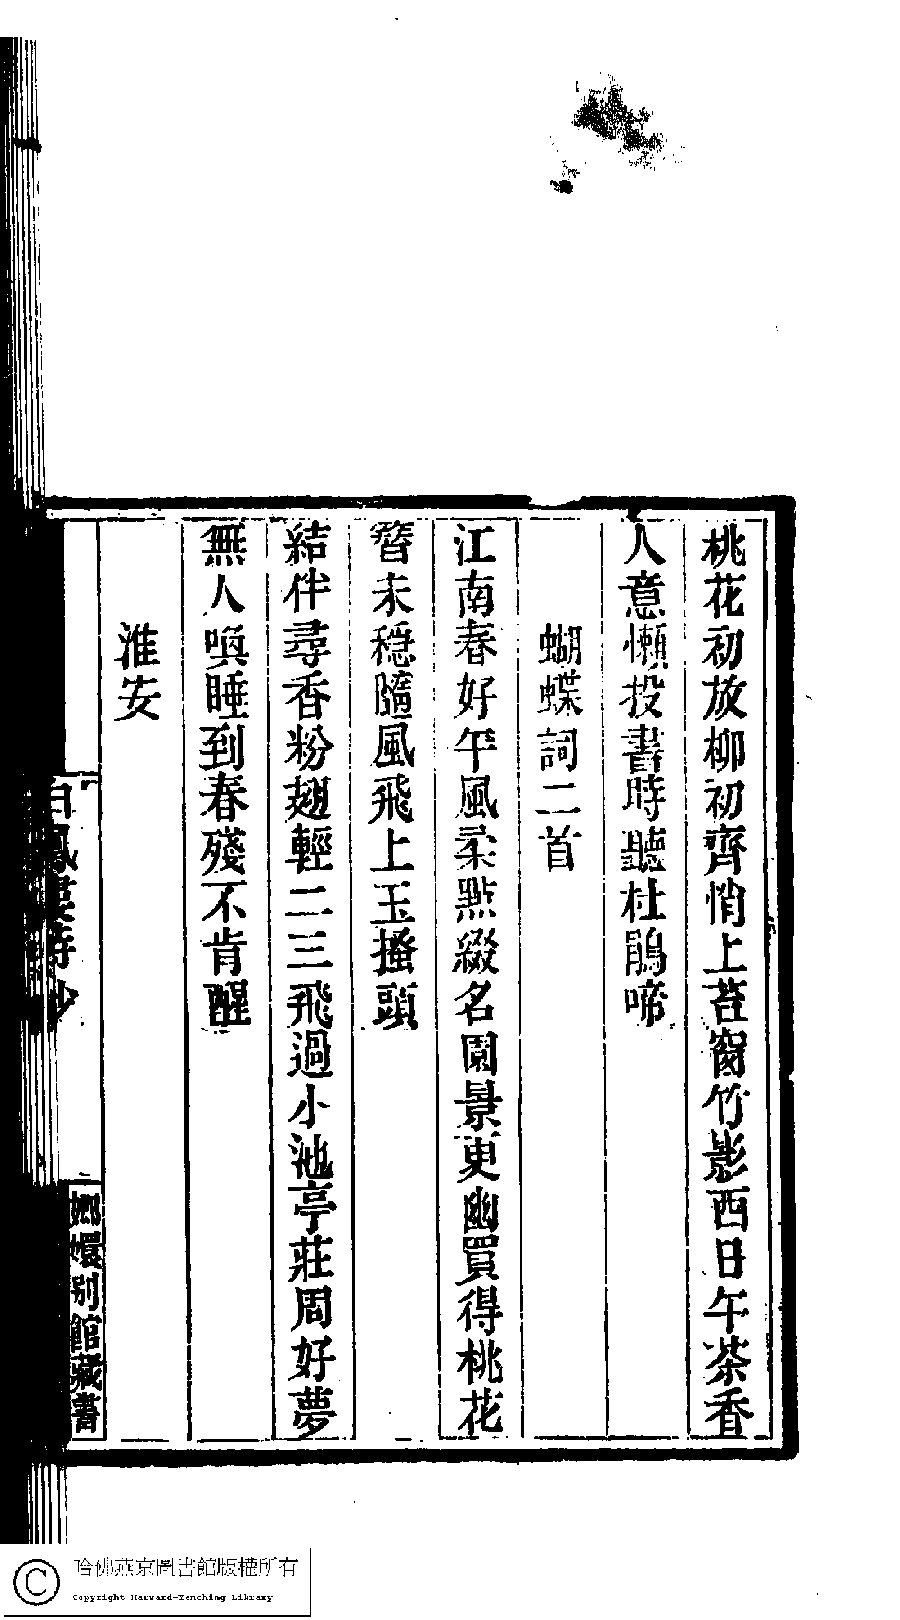 桃花初放柳初齊悄上苔窗竹影西日午茶香
人意懶投書時聽杜鵑啼
蝴蝶詞二首
江南春好午風柔點綴名園景更幽買得桃花
簪未穩隨風飛上玉搔頭
結伴尋香粉翅輕二三飛過小池亭莊周好夢
無人喚睡到春殘不肯醒
淮安
白鳳樓詩鈔
嫏嬛別館藏書
哈佛燕京圖書館版權所有
Copyright Harvard-Yenching Library